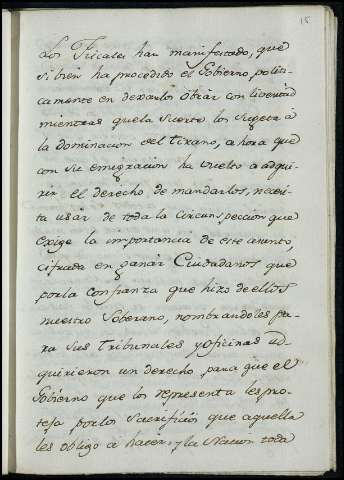 15
Los Fiscales han manifestado, que
si bien ha procedido el Gobierno, politi-
camente en dexarlos obrar con livertad
mientras que la suerte los sugeta à
la dominacion del tirano, a hora que
con su emigracion ha vuelto a adqui-
rir el derecho de mandarlos, necesi-
ta usar de toda la circunspeccion que
exige la importancia de este asunto,
cifrada en ganar Ciudadanos que
por la confianza que hizo de ellos
nuestro Soberano, nombrandoles pa-
ra sus Tribunales y oficinas ad-
quirieron un derecho para que el
Gobierno que los representa les pro-
teja por los sacrificios que aquella
les obligo a hacer, y la Nacion toda